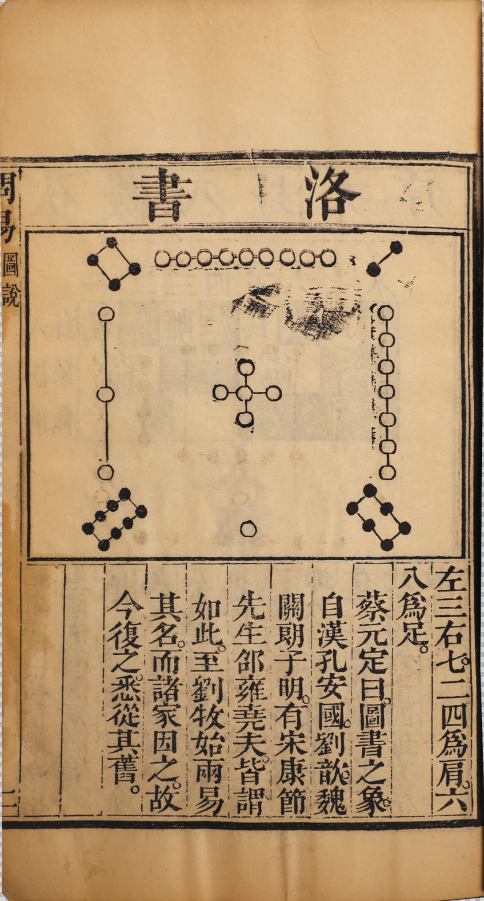 洛書
左三右七。二四爲肩。六
八爲足。
蔡元定曰。圖書之象。
自漢孔安國。劉歆。魏
關朗子明。有宋康節
先生邵雍堯夫。皆謂
如此。至劉牧始兩易
其名。而諸家因之。故
今復之。悉從其舊。
周易圖說